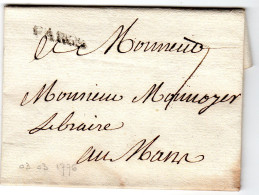 PARIS
A Monsieur
Monsieur Monnoyer
Libraire
au Mans
03 03 1770